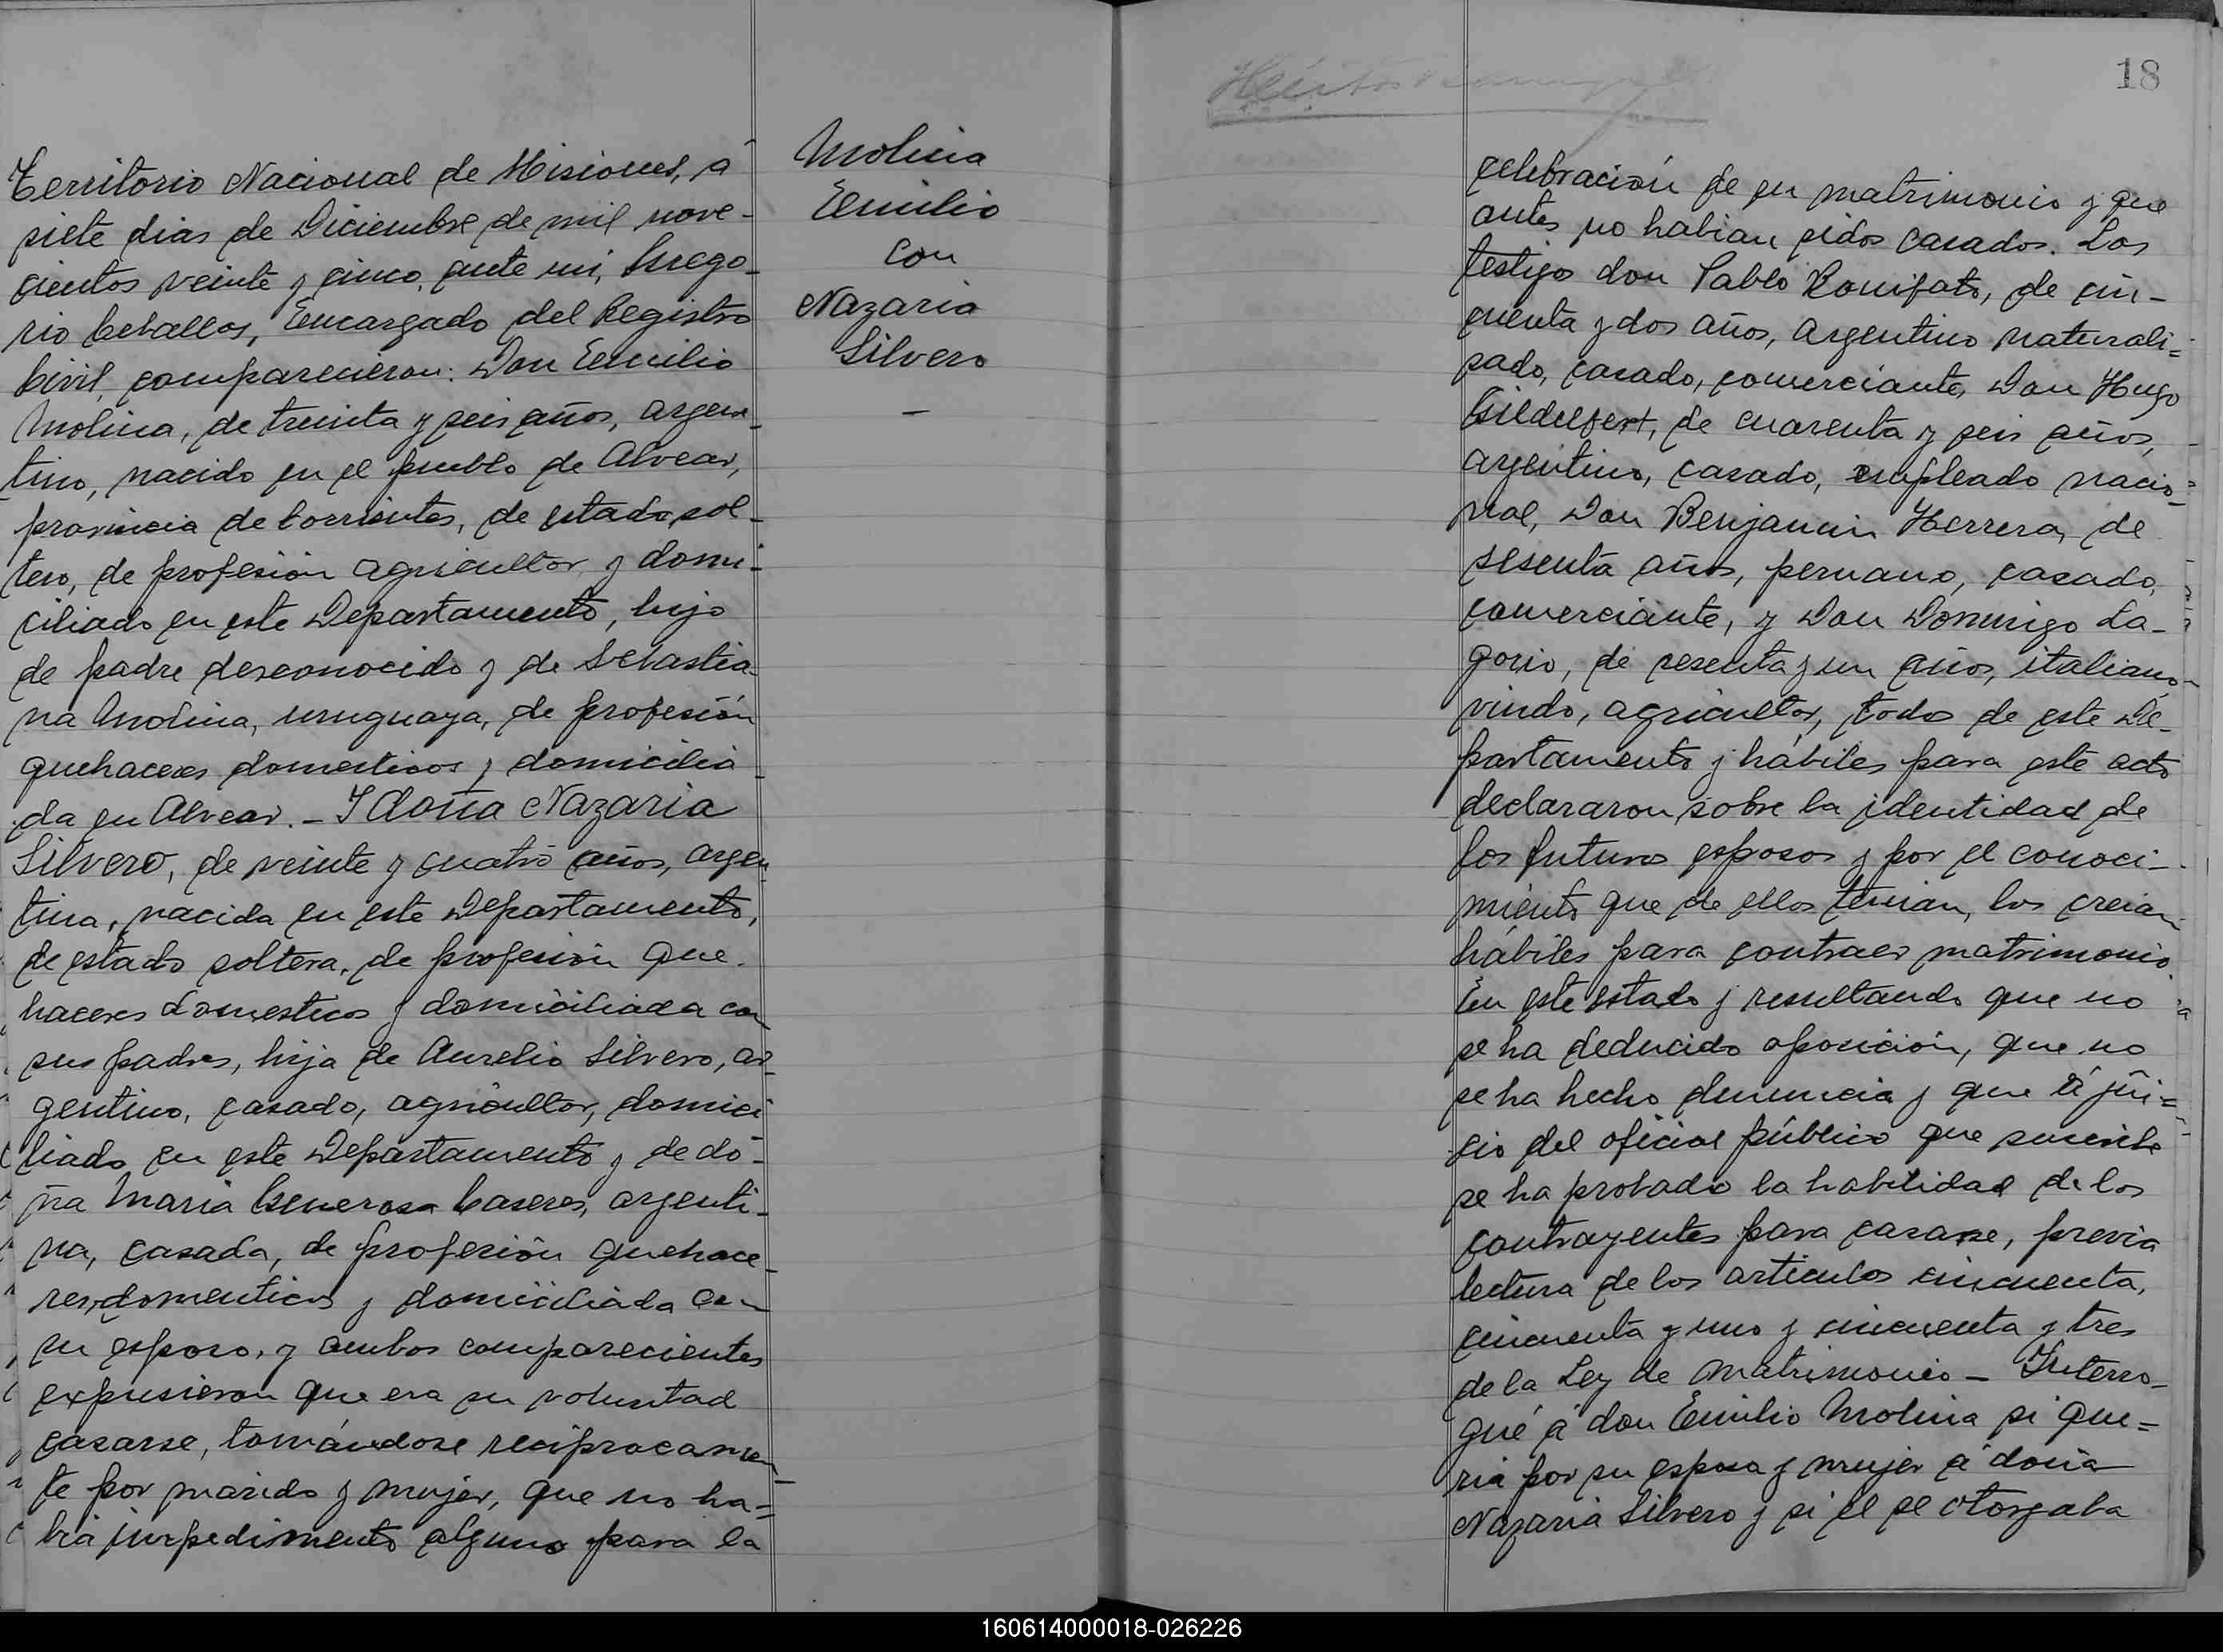 Territorio Nacional de Misiones, á
siete dias de Diciembre de mil nove-
cientos veinte y cinco, ante mi, Grego-
rio Ceballos, Encargado del Registro
Civil, comparecieron: Don Emilio
Molina, de treinta y seis años, argen-
tino, nacido en el pueblo de Alvear,
provincia de Corrientes, de estado sol-
tero, de profesión agricultor y domi-
ciliado en este Departamento, hijo
de padre desconocido y de Sebastia-
na Molina, uruguaya, de profesión
quehaceres domesticos y domicilia-
da en Alvear. - Y doña Nazaria
Silvero, de veinte y cuatro años, argen-
tina, nacida en este Departamento,
de estado soltera, de profesión que-
haceres domesticos y domiciliada con
sus padres, hija de Aurelio Silvero, ar-
gentino, casado, agricultor, domici-
liado en este Departamento y de do-
ña Maria Generosa Caseres, argenti-
na, casada, de profesión quehace-
res domesticos y domiciliada con
su esposo, y ambos comparecientes
expusieron que era su voluntad
casarse, tomándose reciprocamen-
te por marido y mujer, que no ha-
bia impedimento alguno para la
Molina
Emilio
con
Nazaria
Silvero
-
18
celebración de su matrimonio y que
antes no habian sidos casados. Los
testigos don Pablo Bonifato, de cin-
cuenta y dos años, argentino naturali-
sado, casado, comerciante, Don Hugo
de cuarenta y seis años,
argentino, casado, empleado nacio-
nal, Don Benjamin Herrera, de
sesenta años, peruano, casado,
comerciante, y Don Domingo La-
gorio, de sesenta y un años, italiano
viudo, agricultor, todos de este De-
partamento y hábiles para este acto
declararon sobre la identidad de
los futuros esposos y por el conoci-
miento que de ellos tenian, los creian
hábiles para contraer matrimonio.
En este estado y resultando que no
se ha deducido oposición, que no
se ha hecho denuncia y que á jui-
cio del oficial público que suscribe
se ha probado la habilidad de los
contrayentes para casarse, previa
lectura de los articulos cincuenta,
cincuenta y uno y cincuenta y tres
de la Ley de Matrimonio - Interro-
gué á don Emilio Molina si que-
ria por su esposa y mujer á doña
Nazaria Silvero y si él se otorgaba
160614000018-026226